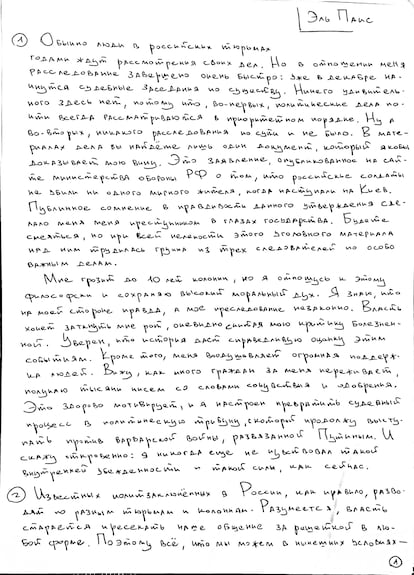 Эль Паис
① Обычно люди в российских тюрьмах
годами ждут рассмотрения своих дел. Но в отношении меня
расследование завершено очень быстро: уже в декабре на-
чнутся судебные заседания по существу. Ничего удивитель-
ного здесь нет, потому что, во-первых, политические дела по-
чти всегда рассматриваются в приоритетном порядке. Ну а
во-вторых, никакого расследования по сути и не было. В мате-
риалах дела вы найдёте лишь один документ, который якобы
доказывает мою вину. Это заявление, опубликованное на сай-
те министерства обороны РФ о том, что российские солдаты
не убили ни одного мирного жителя, когда наступали на Киев.
Публичное сомнение в правдивости данного утверждения сде-
лало меня меня преступником в глазах государства. Будете
смеяться, но при всей нелепости этого уголовного материала
над ним трудилась группа из трех следователей по особо
важным делам.
Мне грозит до 10 лет колонии, но я отношусь к этому
философски и сохраняю высокий моральный дух. Я знаю, что
на моей стороне правда, а мое преследование незаконно. Власть
хочет заткнуть мне рот, очевидно считая мою критику болезнен-
ной. Уверен, что история даст справедливую оценку этим
событиям. Кроме того, меня воодушевляет огромная поддерж-
ка людей. Вижу, как много граждан за меня переживает,
получаю тысячи писем со словами сочувствия и одобрения.
Это здорово мотивирует, и я настроен превратить судебный
процесс в политическую трибуну, с которой продолжу высту-
пать против варварской войны, развязанной Путиным. И
скажу откровенно: я никогда еще не чувствовал такой
внутренней убежденности и такой силы, как сейчас.
② Известных политзаключённых в России, как правило, разво-
дят по разным тюрьмам и колониям. Разумеется, власть
старается пресекать наше общение за решеткой в лю-
бой форме. Поэтому всё, что мы можем в нынешних условиях —
①